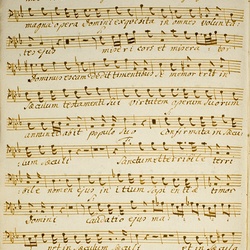 magna opera Domini exquisita in omnes voluntat
tes ejus miseri cors et misera tor
Dominus escam dedit timentibus se memor erit in
saeculum testamenti sui virtutem operum suorum
annuntiabit populo suo confirmata in saecu
lum saeculi Sanctum et terribile terri
bile nomen ejus initium sapientiae timor
Domini laudatio ejus ma
net in saeculum saeculi